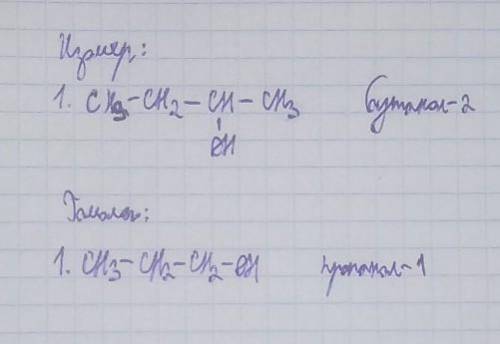 Изомер:
1. CH3-CH2-CH-CH3 бутанол-2
OH
Гомолог:
1. CH3-CH2-CH2-OH пропанол-1